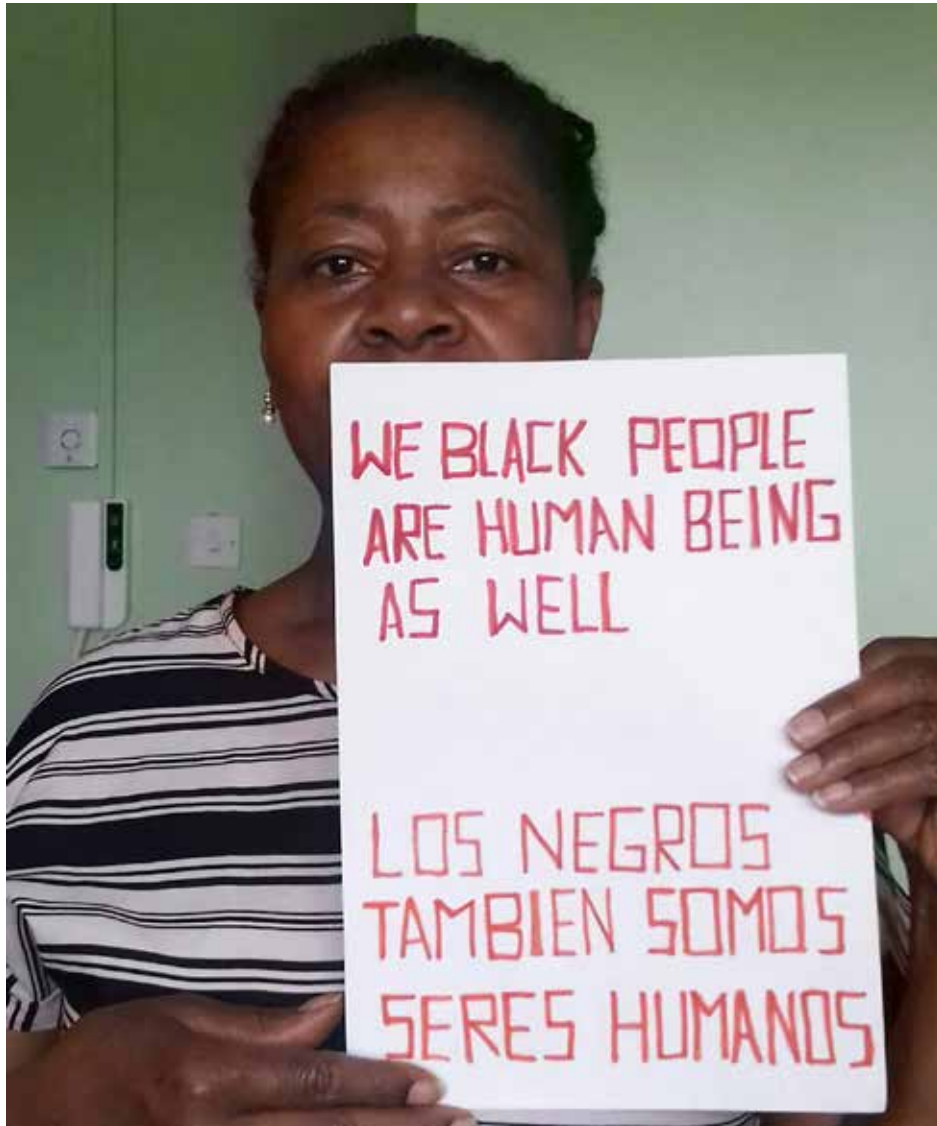 WE BLACK PEOPLE
ARE HUMAN BEING
AS WELL
LOS NEGROS
TAMBIEN SOMOS
SERES HUMANOS